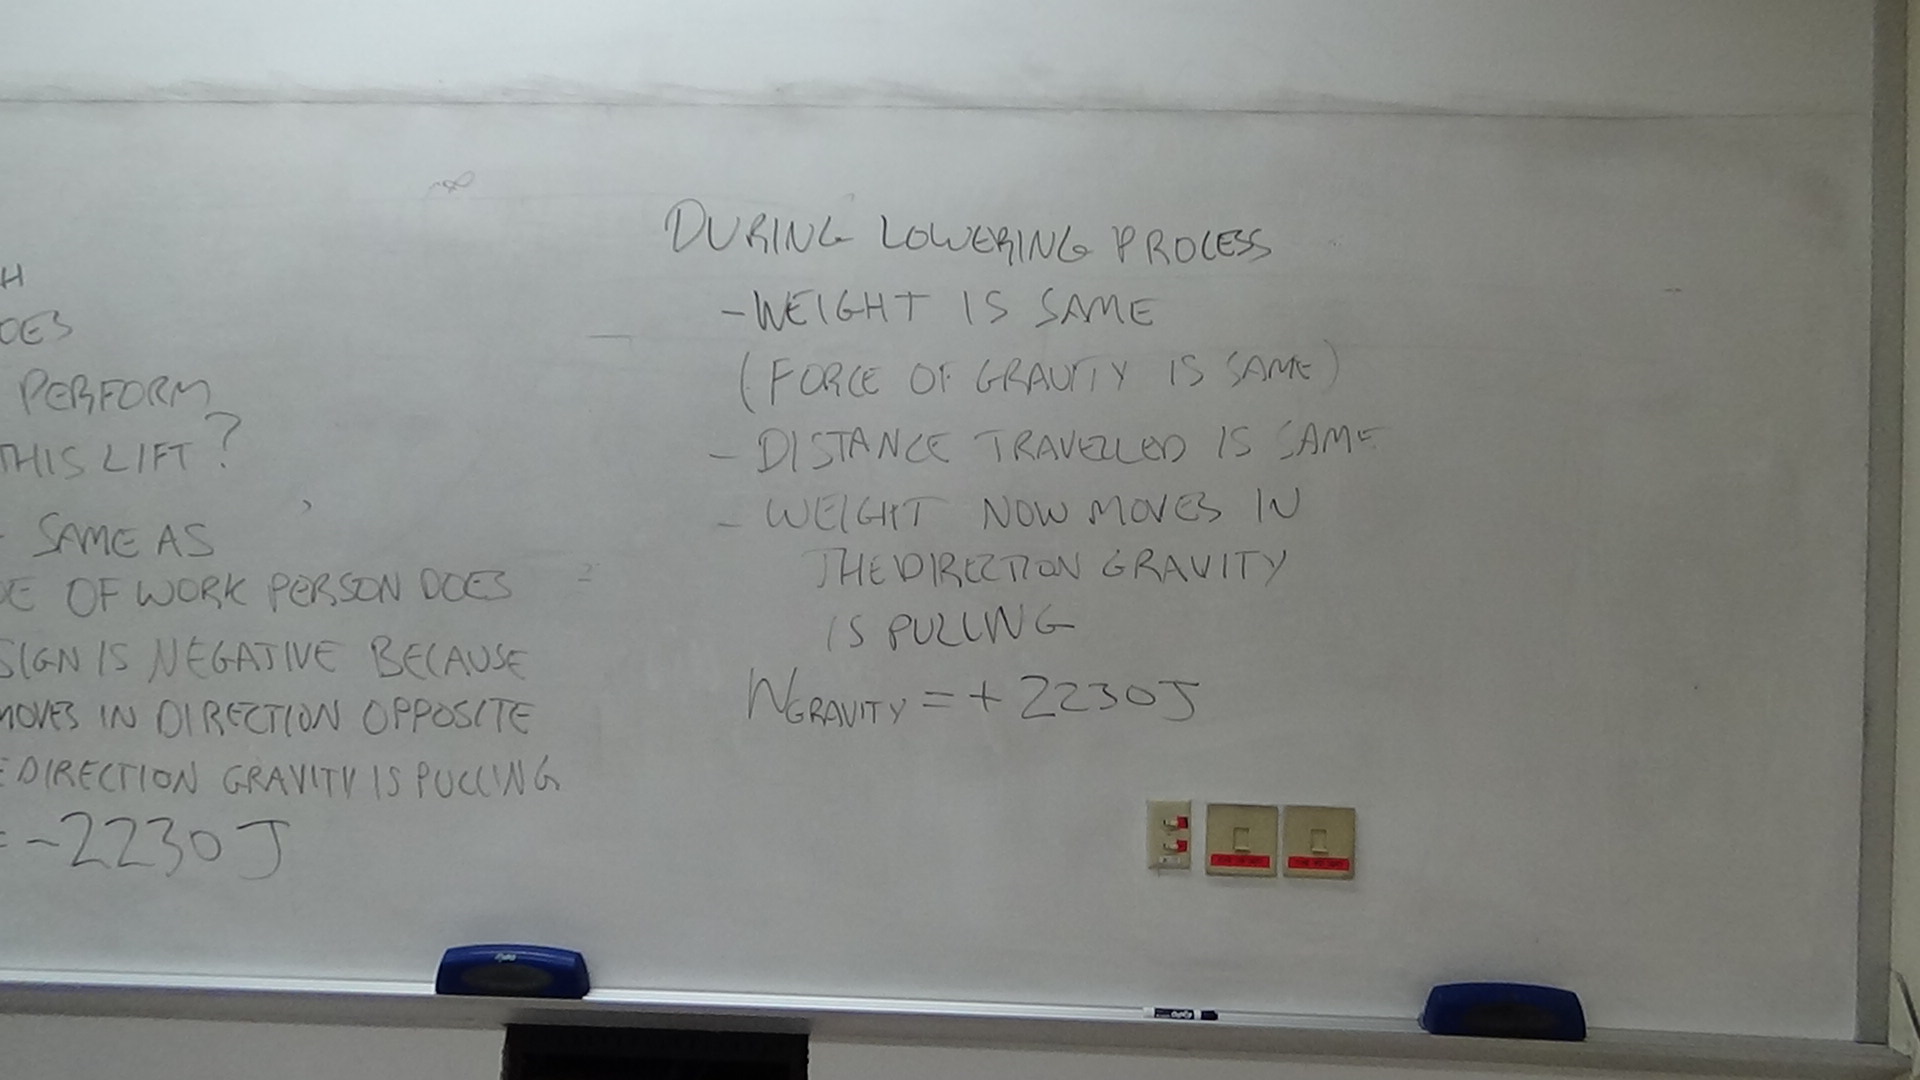 H
OES
PERFORM
THIS LIFT?
- SAME AS
DE OF WORK PERSON DOES
SIGN IS NEGATIVE BECAUSE
MOVES IN DIRECTION OPPOSITE
E DIRECTION GRAVITY IS PULLING
= -2230 J
DURING LOWERING PROCESS
- WEIGHT IS SAME
(FORCE OF GRAVITY IS SAME)
- DISTANCE TRAVELLED IS SAME
- WEIGHT NOW MOVES IN
THE DIRECTION GRAVITY
IS PULLING
WGRAVITY = + 2230 J
EXPO